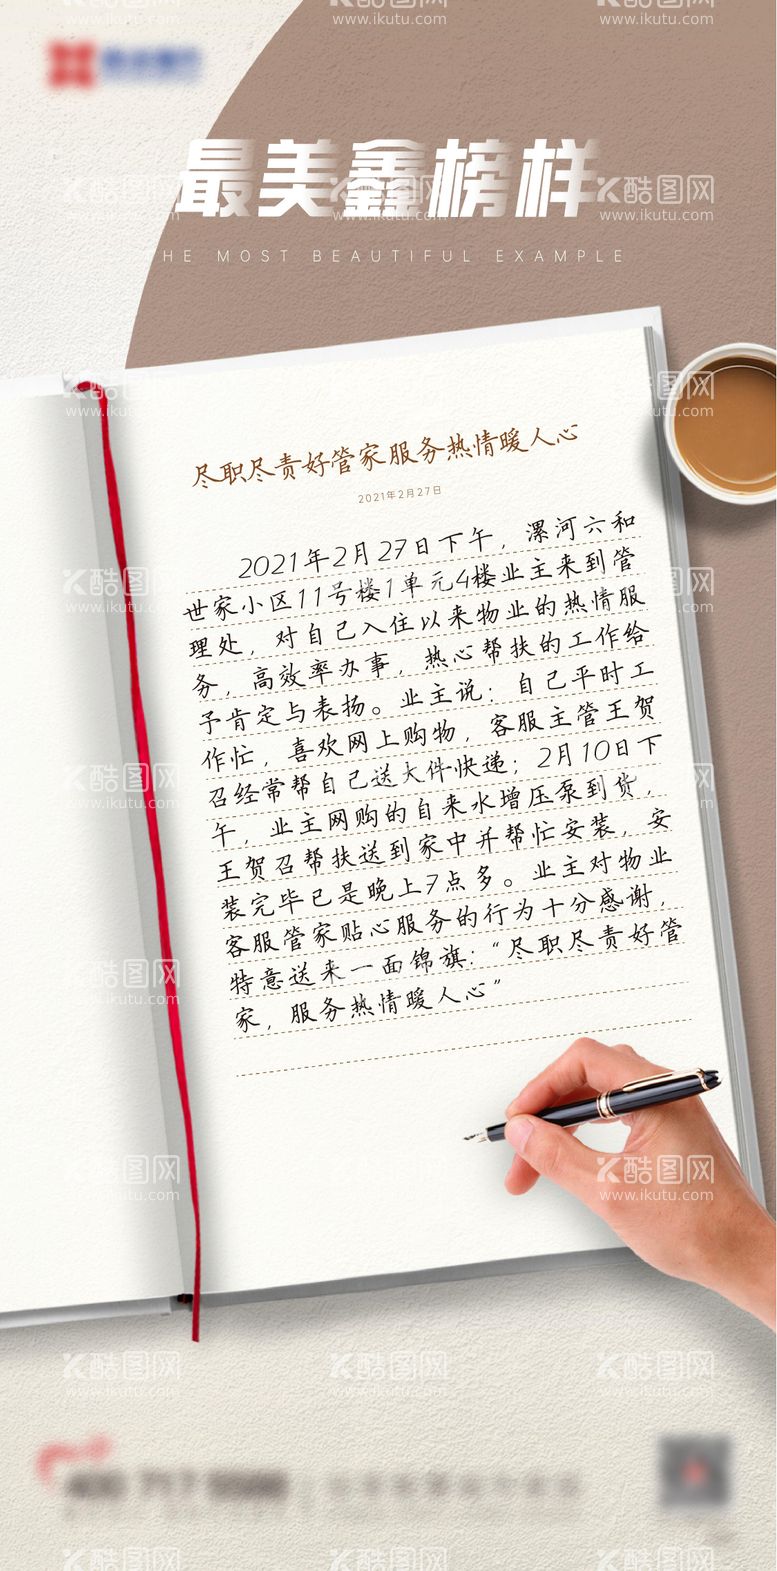 最美鑫榜样
THE MOST BEAUTIFUL EXAMPLE
尽职尽责好管家服务热情暖人心
2021年2月27日
2021年2月27日下午，漯河六和
世家小区11号楼1单元4楼业主来到管
理处，对自己入住以来物业的热情服
务，高效率办事，热心帮扶的工作给
予肯定与表扬。业主说：自己平时工
作忙，喜欢网上购物，客服主管王贺
召经常帮自己送大件快递；2月10日下
午，业主网购的自来水增压泵到货，
王贺召帮扶送到家中并帮忙安装，安
装完毕已是晚上7点多。业主对物业
客服管家贴心服务的行为十分感谢，
特意送来一面锦旗：“尽职尽责好管
家，服务热情暖人心”
酷图网
www.ikutu.com